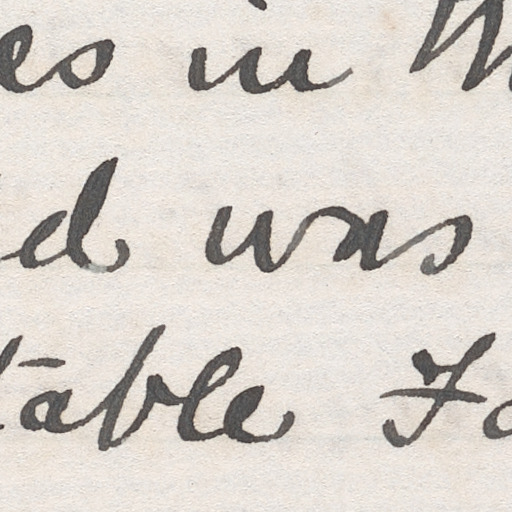 es in
d was
table